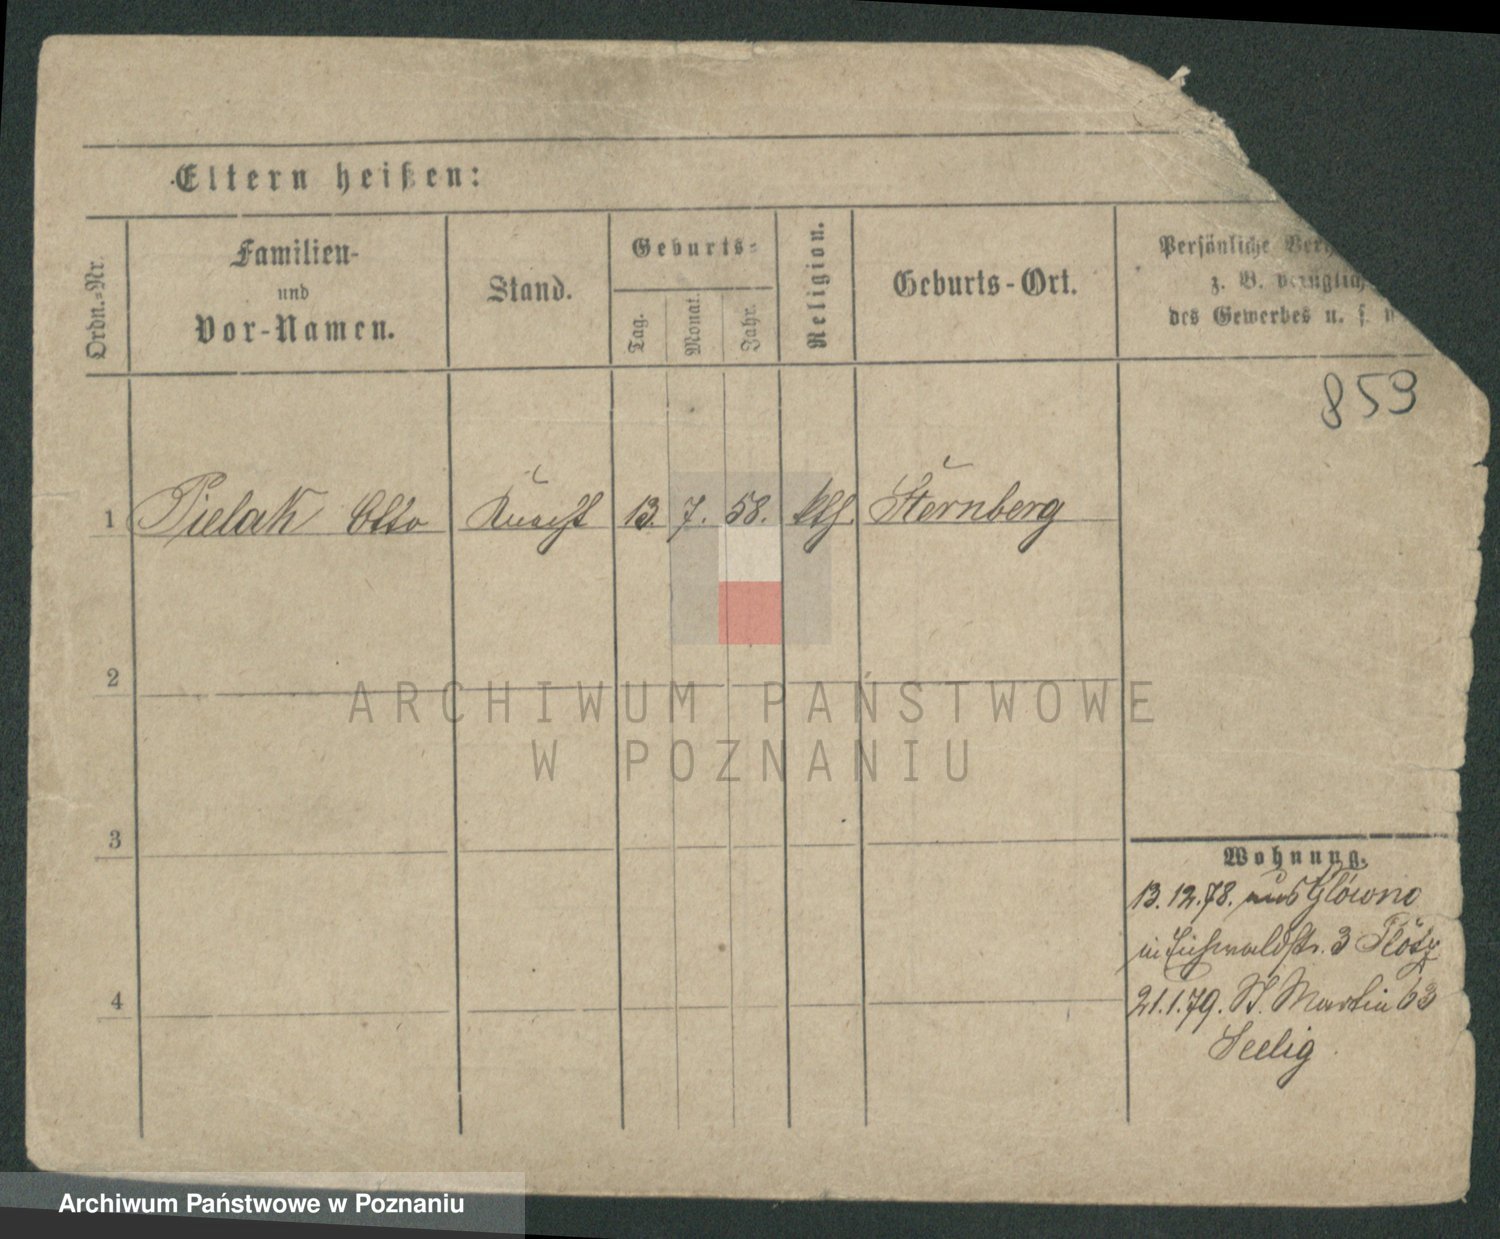 Eltern heißen:
Ordn.-Nr.
Familien-
und
Vor-Namen.
Stand.
Geburts-
Tag.
Monat.
Jahr.
Religion.
Geburts-Ort.
Persönliche
z. B. bezüglich
des Gewerbes u. s.
859
1 Pielak Otto Knecht 13. 7. 58. kth. Sternberg
2
3
4
Wohnung.
13.12.78. aus Glówno
in Eichwaldstr. 3 Plötz
21.1.79. St. Martin 63
Seelig
ARCHIWUM PAŃSTWOWE
W POZNANIU
Archiwum Państwowe w Poznaniu